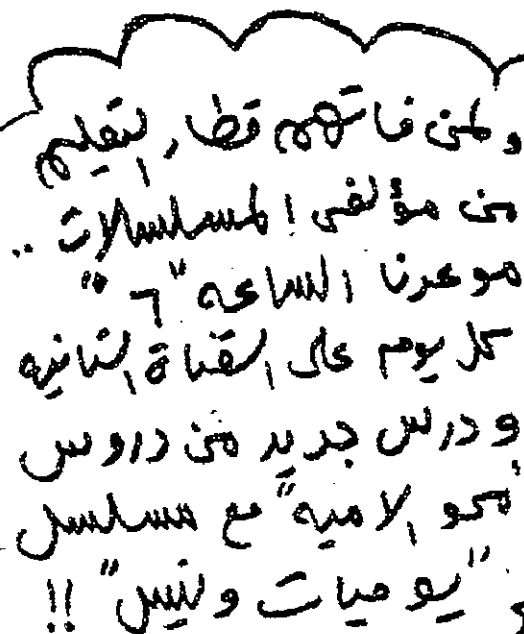 ولمن فاتهم قطار التعليم
من مؤلفى المسلسلات ..
موعدنا الساعه "٦"
كل يوم على القناة الثانيه
ودرس جديد من دروس
"محو الاميه" مع مسلسل
"يوميات ونيس" !!